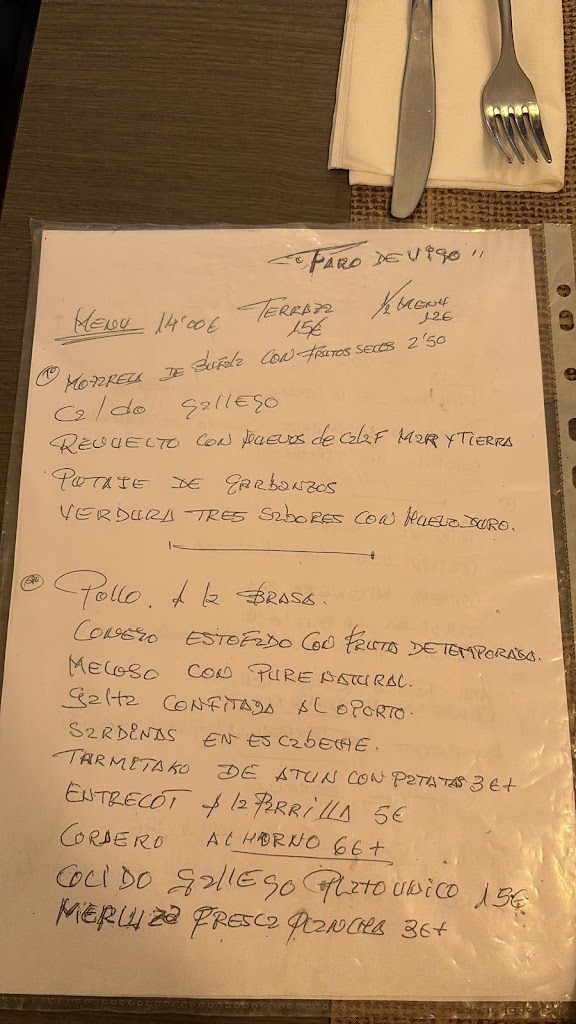 "FARO DE VIGO"
MENU 14'00€ TERRAZA 15€ 1/2 MENU 12€
1º MOZZRELA DE BUFALA CON FRUTOS SECOS 2'50
CALDO GALLEGO
REVUELTO CON HUEVOS de CALAF MAR Y TIERRA
POTAJE DE GARBANZOS
VERDURA TRES SABORES CON HUEVO DURO.
POLLO A la BRASA.
CONEJO ESTOFADO CON FRUTA DE TEMPORADA.
MELOSO CON PURE NATURAL.
GALTA CONFITADA AL OPORTO.
SARDINAS EN ESCABECHE.
TARMITAKO DE ATUN CON PATATAS 3€+
ENTRECOT A la PARRILLA 5€
CORDERO AL HORNO 6€+
COCIDO GALLEGO PLATO UNICO 15€
MERLUZA FRESCA PLANCHA 3€+